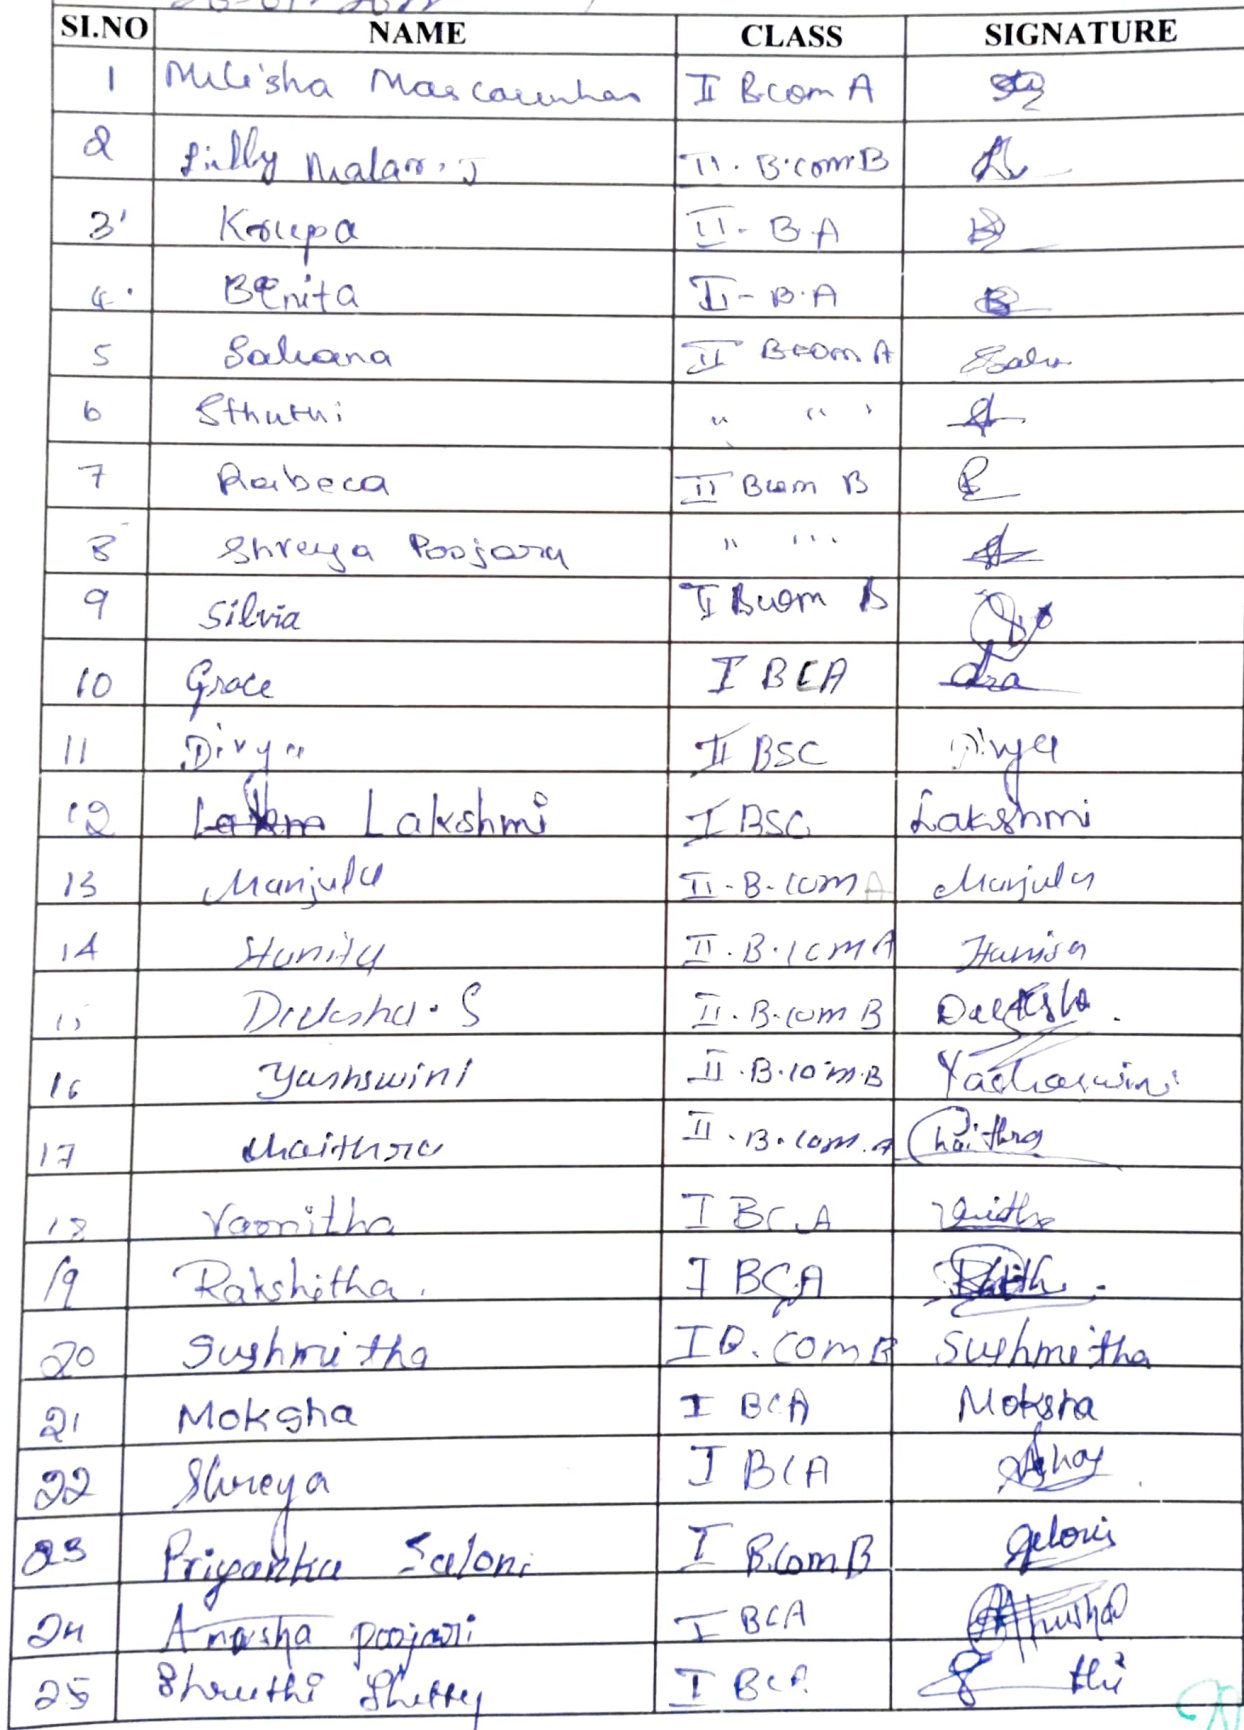 SI.NO NAME CLASS SIGNATURE
1 Melisha Mascarenhas II B.com A
2 Lilly Malar. J II. B.com B
3' Krupa II - B.A
4. Benita II - B.A
5 Sahana II Bcom A Saha
6 Sthuthi " " '
7 Rabeca II Bcom B
8 Shreya Poojary " " '
9 Silvia II Bcom B
10 Grace I BCA Gra
11 Divya II BSC Divya
12 Lakshmi I BSC Lakshmi
13 Manjula II. B. com A Manjula
14 II. B. com A
15 Deeksha. S II. B. com B Deeksha.
16 Yashswini II. B. com. B Yashaswini
17 Chaithra II. B. com. A Chaithra
18 Vanitha I BC.A
19 Rakshitha. I BCA
20 Sushmitha I B. com B Sushmitha
21 Moksha I BCA Moksha
22 Shreya I BCA
23 Priyanka Saloni I B.com B
24 Anusha poojari I BCA Anusha
25 Shruthi Shetty I BCA thi